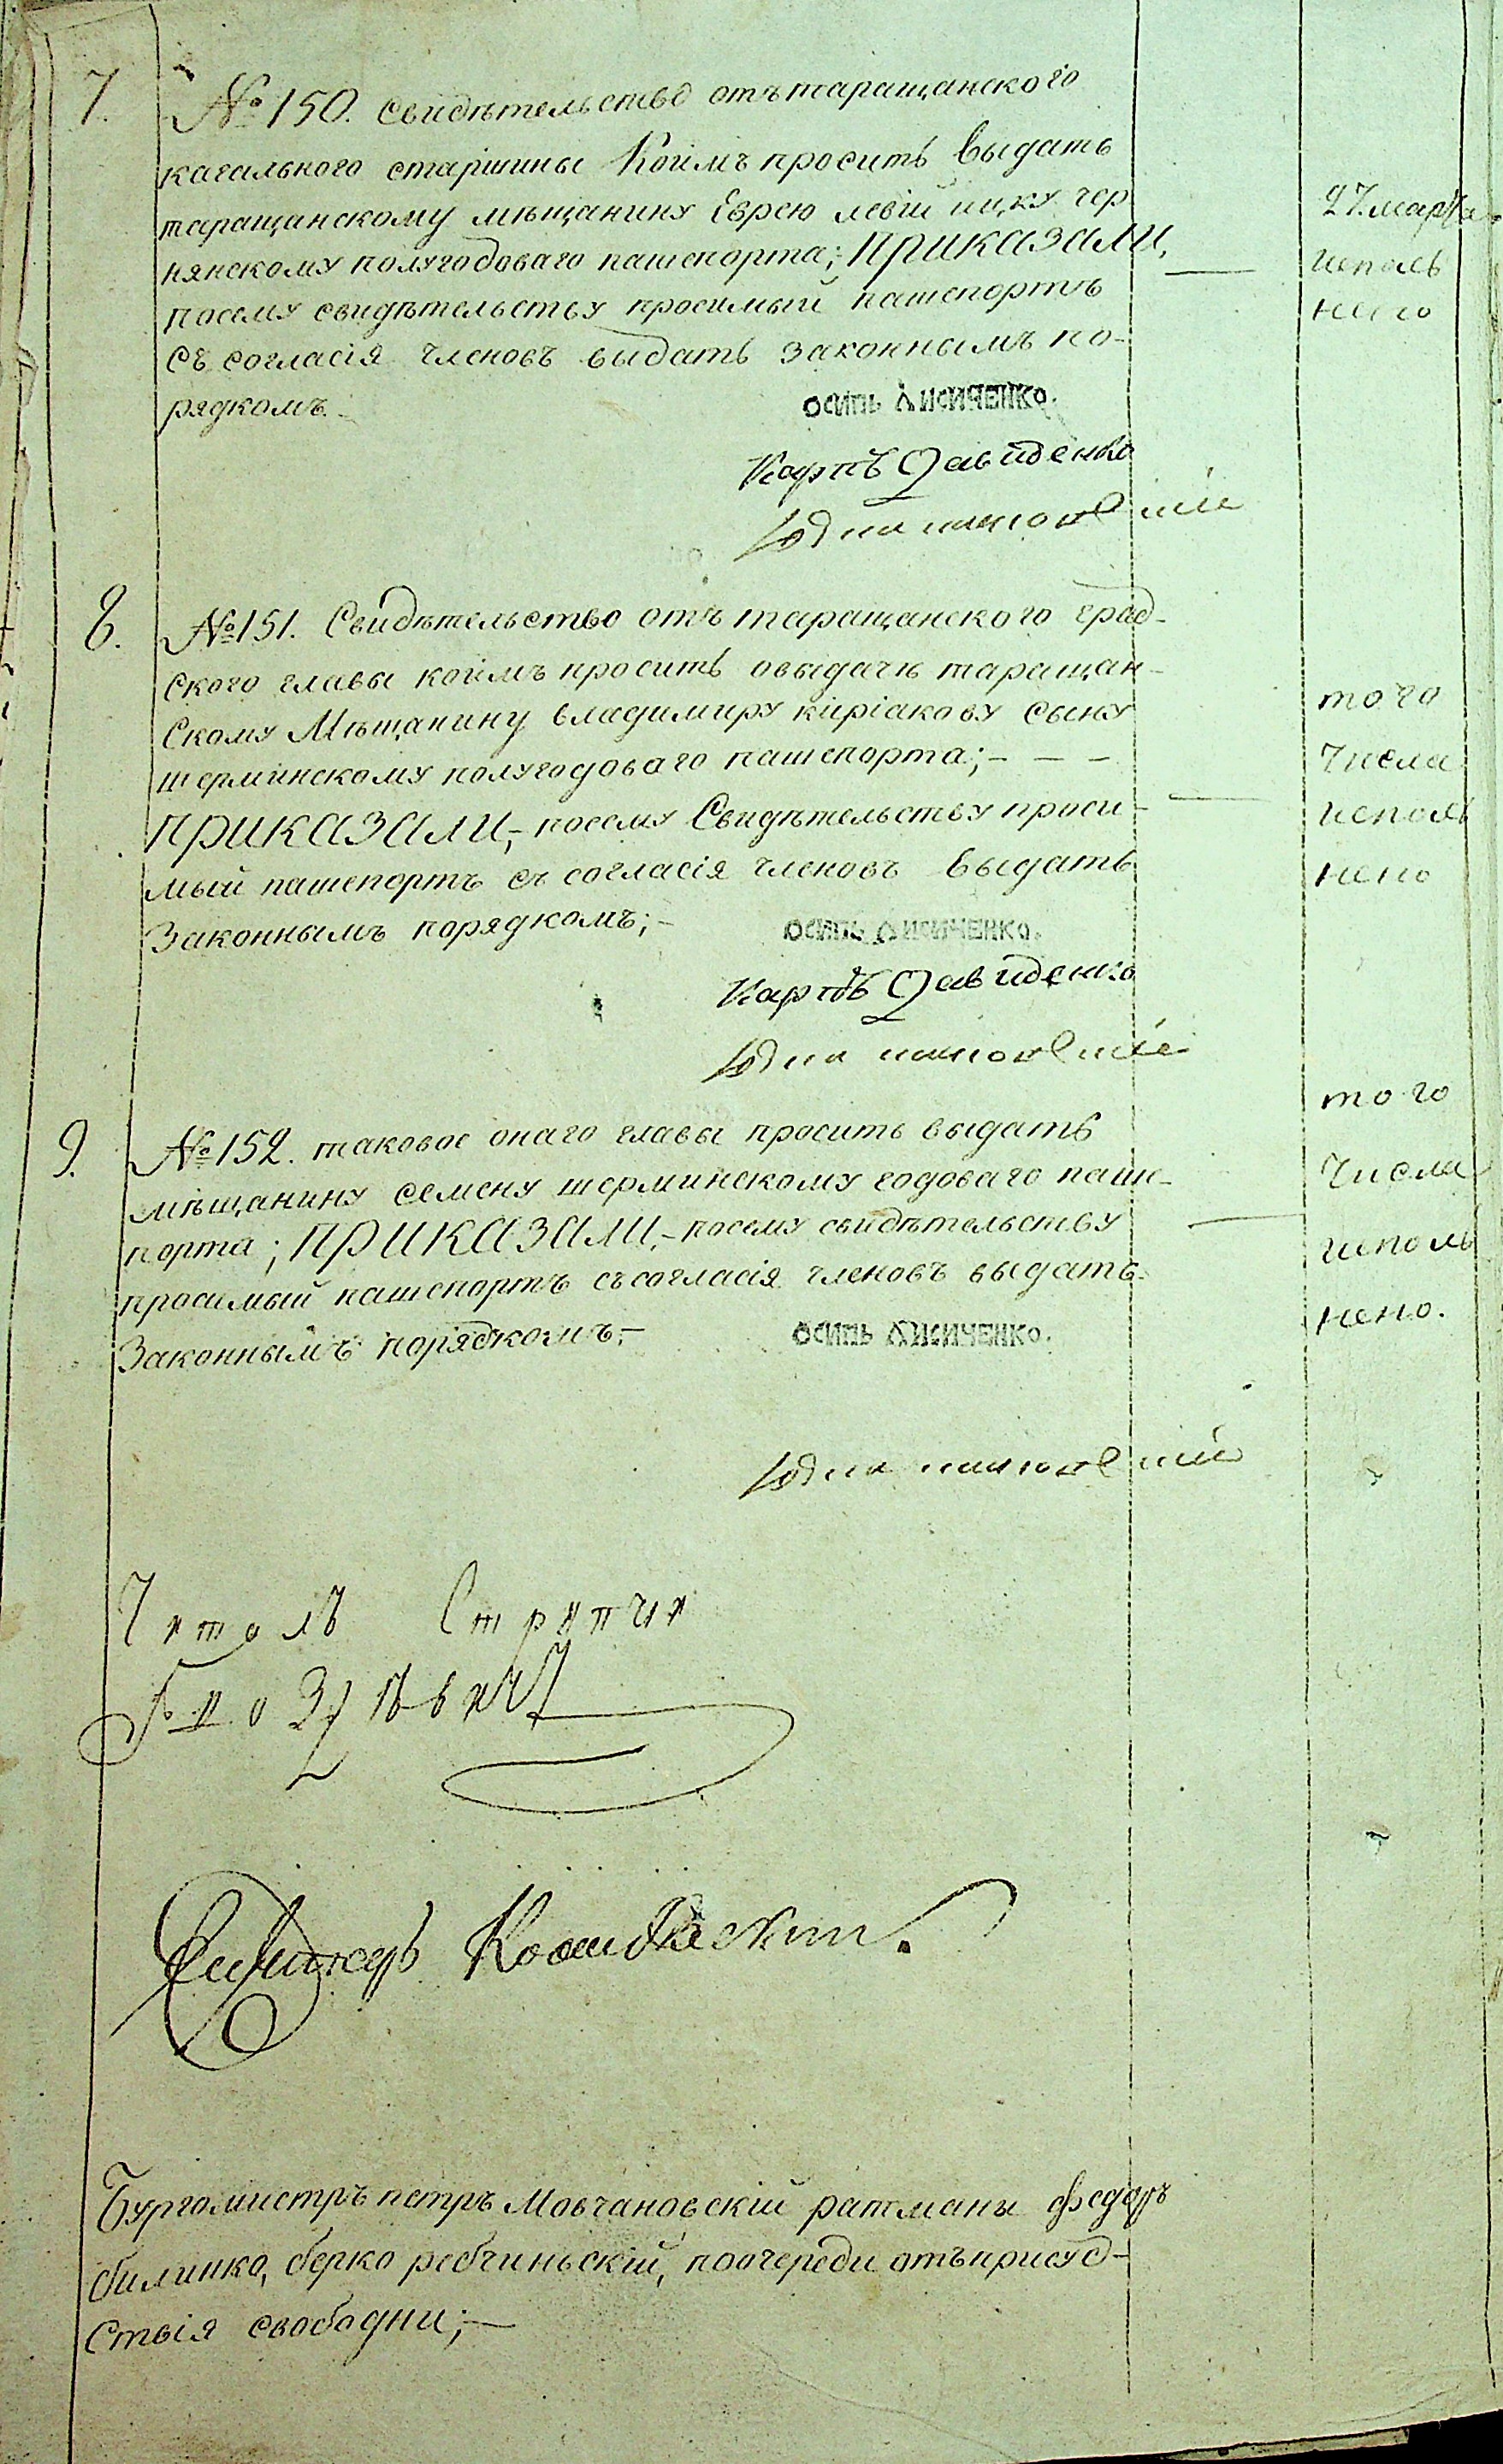 7. № 150. Свидѣтельство отъ таращанского
кагального старшины Коимъ проситъ выдать
таращанскому мѣщанину Еврею левій ицку чер
нянскому полугодоваго пашспорта; ПРИКАЗАЛИ,
посему свидѣтельству просимый пашспортъ
съ согласія членовъ выдать законнымъ по-
рядкомъ.
27. марта
исполь
нено
Осипъ Лисиченко.
Карпъ Давиденко
8. № 151. Свидѣтельство отъ таращанского град-
ского главы коимъ проситъ овыдачѣ таращан-
скому Мѣщанину владимиру киріакову сыну
шерминскому полугодоваго пашспорта; - - -
ПРИКАЗАЛИ, - посему Свидѣтельству проси-
мый пашспортъ съ согласія членовъ выдать
Законнымъ порядкомъ; -
того
Числа
исполь
нено
Осипъ Лисиченко.
Карпъ Давиденко
9. № 152. таковое онаго главы проситъ выдать
мѣщанину семену шерминскому годоваго пашс-
порта; ПРИКАЗАЛИ, - посему свидѣтельству
просимый пашспортъ съсогласія членовъ выдать
Законнымъ порядкомъ. -
того
Числа
исполь
нено.
Осипъ Лисиченко.
Читалъ Стряпчи
Бургомистръ петръ Мовчановскій ратманы федоръ
билинко, берко ребчиньскій, поочереди отъприсуд-
ствія свободни; -